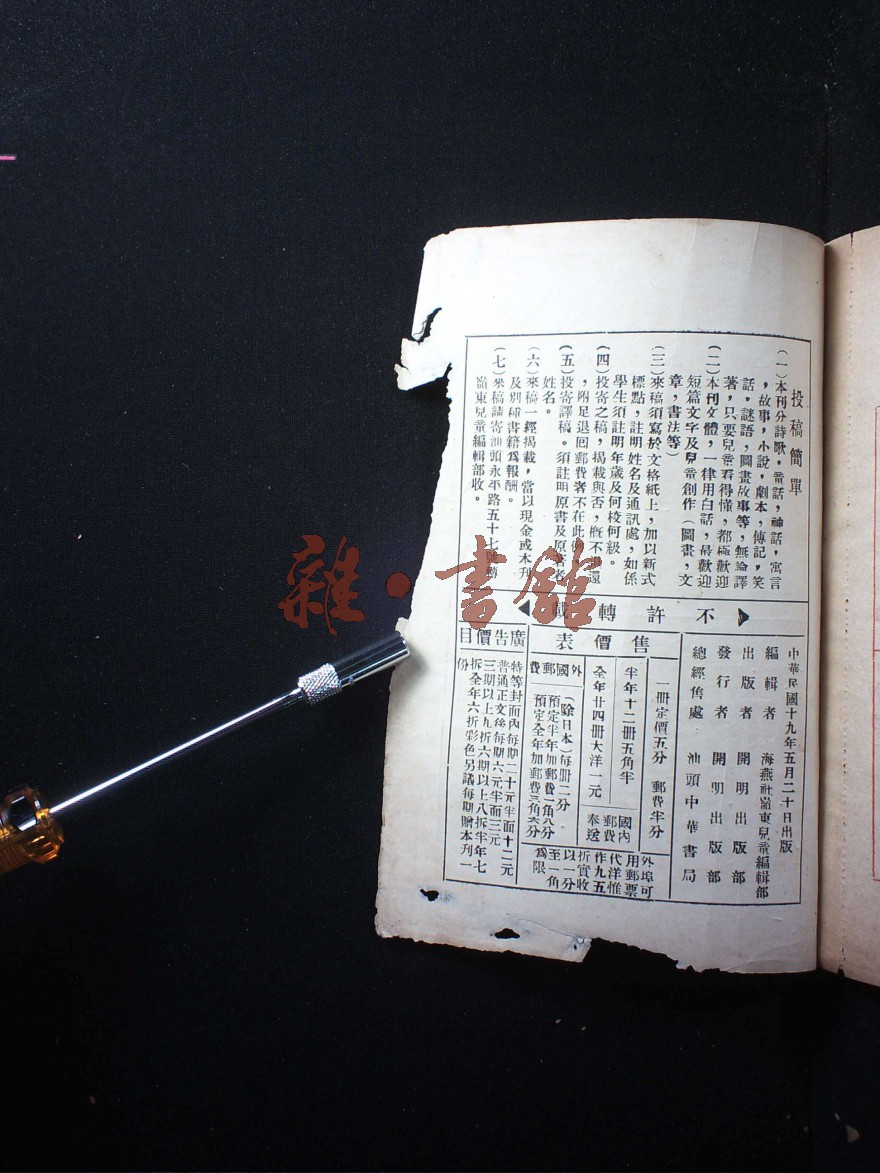 投稿簡單
（一）本刊分詩歌，童話，神話，寓言
，故事，小說，劇本，傳記，笑
話，謎語，圖畫故事等，無論譯
著，只要兒童看得懂，都極歡迎
（二）本刊文體，一律用白話，最歡迎
短篇文字及兒童創作（圖畫，文
章，書法等）
（三）來稿須寫於文格紙上，加以新式
標點，註明姓名及通訊處，如係
學生須註明年歲及何校何級。
（四）投寄之稿，揭載與否，概不退還
，附足退回郵費者不在此例
（五）投寄譯稿。須註明原書及原著者
姓名。
（六）來稿一經揭載，當以現金或本刊
及別種書籍爲報酬。
（七）來稿請寄汕頭永平路五十七號轉
嶺東兒童編輯部收。
不許轉載
中華民國十九年五月二十日出版
編輯者 海燕社嶺東兒童編輯部
出版者 開明出版部
發行者 開明出版部
總經售處 汕頭中華書局
售價表
一册定價五分 郵費半分
半年十二册五角半
全年廿四册大洋一元
國內郵費奉送
外國郵費
（除日本）每册二分
預定半年加郵費一角八分
預定全年加郵費三角六分
外埠可
用郵票
代洋惟
作九五
折實收
以一分
至一角
爲限
廣告價目
特等封面內每期二十元半面十二元
普通正文後每期六元半面三元
三期以上九折六期以上八折半年七
折全年六折彩色另議每期贈本刊一
份
雜·書館